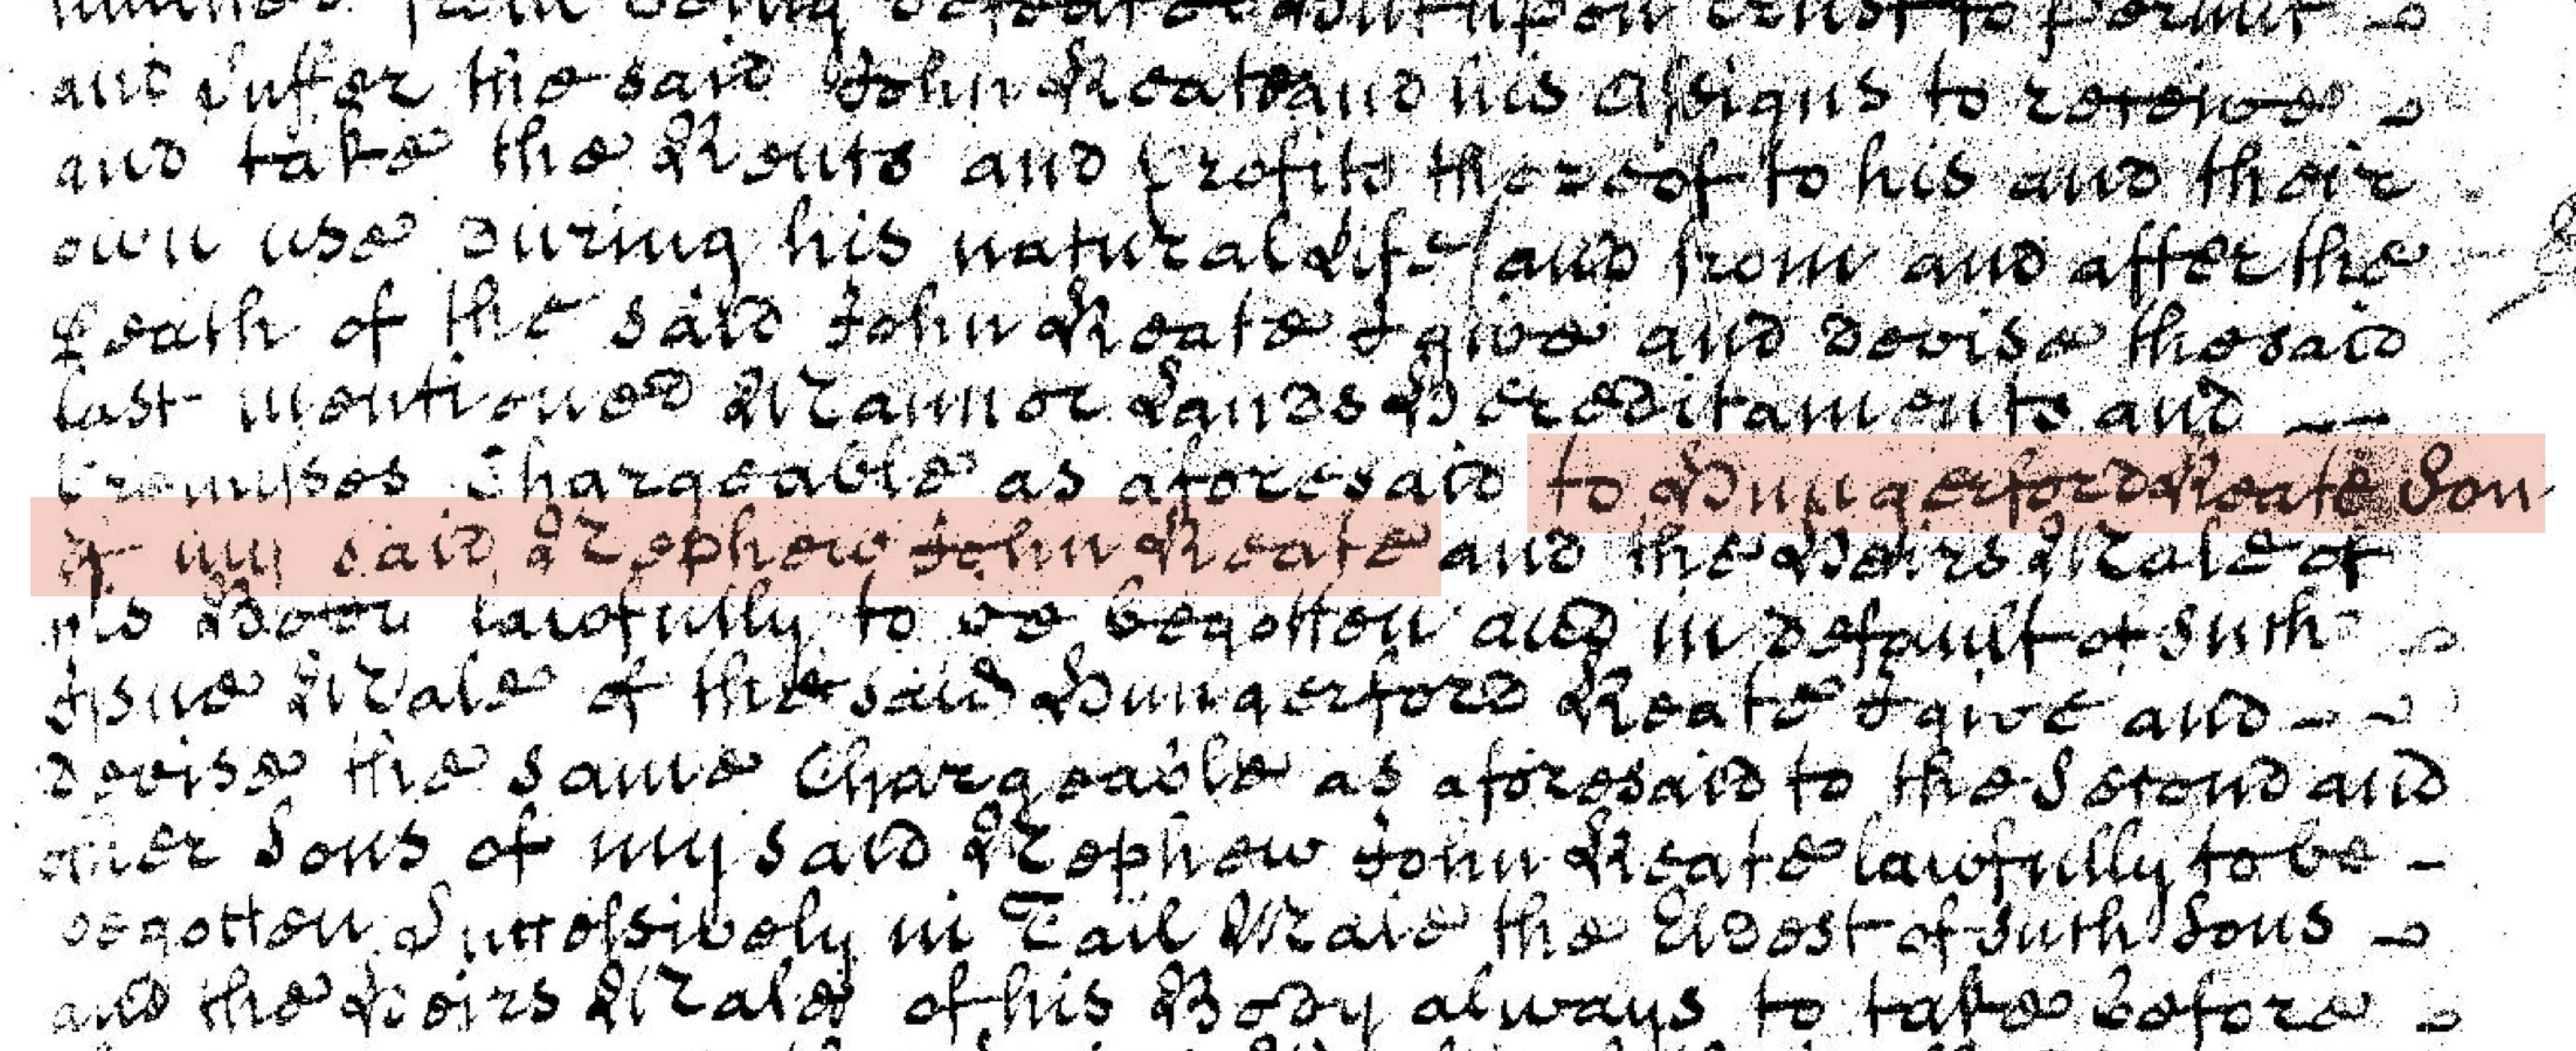 from being upon trust to permit
and suffer the said John Keate and his Assigns to receive
and take the Rents and Profits thereof to his and their
own use during his natural Life / and from and after the
Death of the said John Keate I give and devise the said
last mentioned Mannor Lands Hereditaments and —
Premisses Chargeable as aforesaid to Hungerford Keate Son
of my said Nephew John Keate and the Heirs Male of
his Body lawfully to be begotten and in default of such
Issue Male of the said Hungerford Keate I give and - -
devise the same Chargeable as aforesaid to the Second and
other Sons of my said Nephew John Keate lawfully to be -
begotten Successively in Tail Male the Eldest of such Sons
and the Heirs Male of his Body always to take before